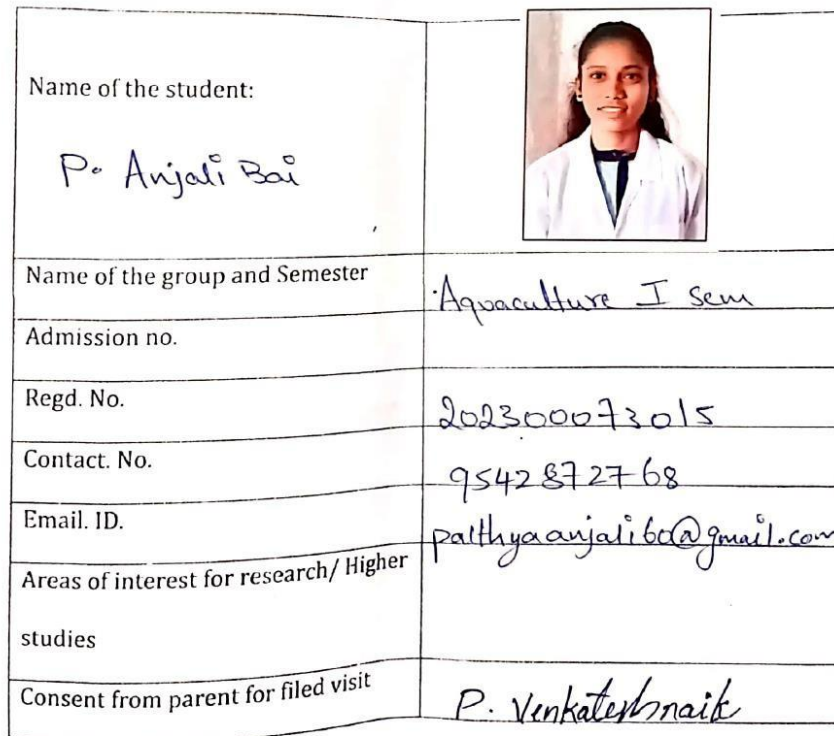 Name of the student:
P. Anjali Bai
Name of the group and Semester
Aquaculture I sem
Admission no.
Regd. No.
202300073015
Contact. No.
9542872768
Email. ID.
palthyaanjali60@gmail.com
Areas of interest for research/ Higher
studies
Consent from parent for filed visit
P. Venkateshnaik